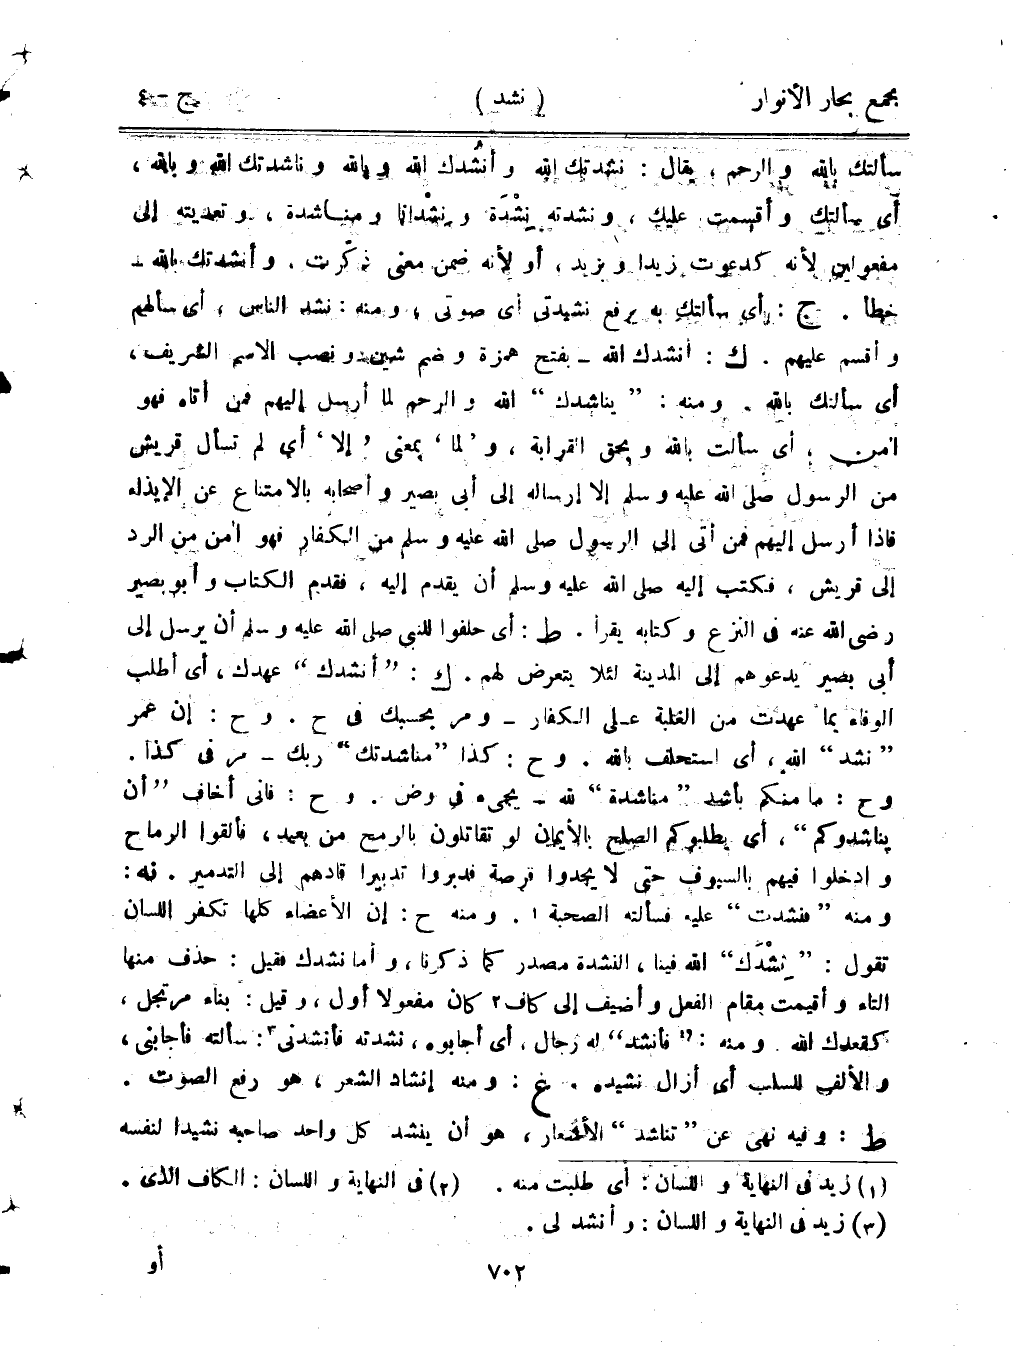 مجمع بحار الأنوار ( نشد ) ج - ٤
سألتك بالله و الرحم ، يقال : نشدتك الله و أنشُدك الله و بالله و ناشدتك الله و بالله ،
أى سألتك و أقسمت عليك ، و نشدته نِشْدَة و نِشْدانا و مناشدة ، و تعديته إلى
مفعولين لأنه كدعوت زيدا و بزيد ، أو لأنه ضمن معنى ذكّرت . و أنشدتك بالله ـ
خطأ . ج : أى سألتك به برفع نشيدتى أى صوتى ، و منه : نشد الناس ، أى سألهم
و أقسم عليهم . ك : أنشدك الله ـ بفتح همزة و ضم شين و نصب الاسم الشريف ،
أى سألتك بالله . و منه : ” يناشدك “ الله و الرحم لما أرسل إليهم فمن أتاه فهو
اٰمن ، أى سألت بالله و بحق القرابة ، و ’ لما ‘ بمعنى ’ إلا ‘ أى لم تسأل قريش
من الرسول صلى الله عليه و سلم إلا إرساله إلى أبى بصير و أصحابه بالامتناع عن الإيذاء
فاذا أرسل إليهم فمن أتى إلى الرسول صلى الله عليه و سلم من الكفار فهو اٰمن من الرد
إلى قريش ، فكتب إليه صلى الله عليه و سلم أن يقدم إليه ، فقدم الكتاب و أبو بصير
رضى الله عنه فى النزع و كتابه يقرأ . ط : أى حلفوا للنبى صلى الله عليه و سلم أن يرسل إلى
أبى بصير يدعوهم إلى المدينة لئلا يتعرض لهم . ك : ” أنشدك “ عهدك ، أى أطلب
الوفاء بما عهدت من الغلبة على الكفار ـ و مر بحسبك فى ح . و ح : إن عمر
” نشد “ الله ، أى استحلف بالله . و ح : كذا ” مناشدتك “ ربك ـ مر فى كذا .
و ح : ما منكم بأشد ” مناشدة “ لله ـ يجىء فى وض . و ح : فانى أخاف ” أن
يناشدوكم “ ، أى يطلبوكم الصلح بالأيمان لو تقاتلون بالرمح من بعيد ، فألقوا الرماح
و ادخلوا فيهم بالسيوف حتى لا يجدوا فرصة فدبروا تدبيرا قادهم إلى التدمير . نه :
و منه ” فنشدت “ عليه فسألته الصحبة ١ . و منه ح : إن الأعضاء كلها تكفر اللسان
تقول : ” نِشْدَك “ الله فينا ، النشدة مصدر كما ذكرنا ، و أما نشدك فقيل : حذف منها
التاء و أقيمت مقام الفعل و أضيف إلى كاف ٢ كان مفعولا أول ، و قيل : بناء مرتجل ،
كقعدك الله . و منه : ” فأنشد “ له رجال ، أى أجابوه ، نشدته فأنشدنى ٣ : سألته فأجابنى ،
و الألف للسلب أى أزال نشيده . غ : و منه إنشاد الشعر ، هو رفع الصوت .
ط : و فيه نهى عن ” تناشد “ الأشعار ، هو أن ينشد كل واحد صاحبه نشيدا لنفسه
(١) زيد فى النهاية و اللسان : أى طلبت منه . (٢) فى النهاية و اللسان : الكاف الذى .
(٣) زيد فى النهاية و اللسان : و أنشد لى .
٧٠٢ أو